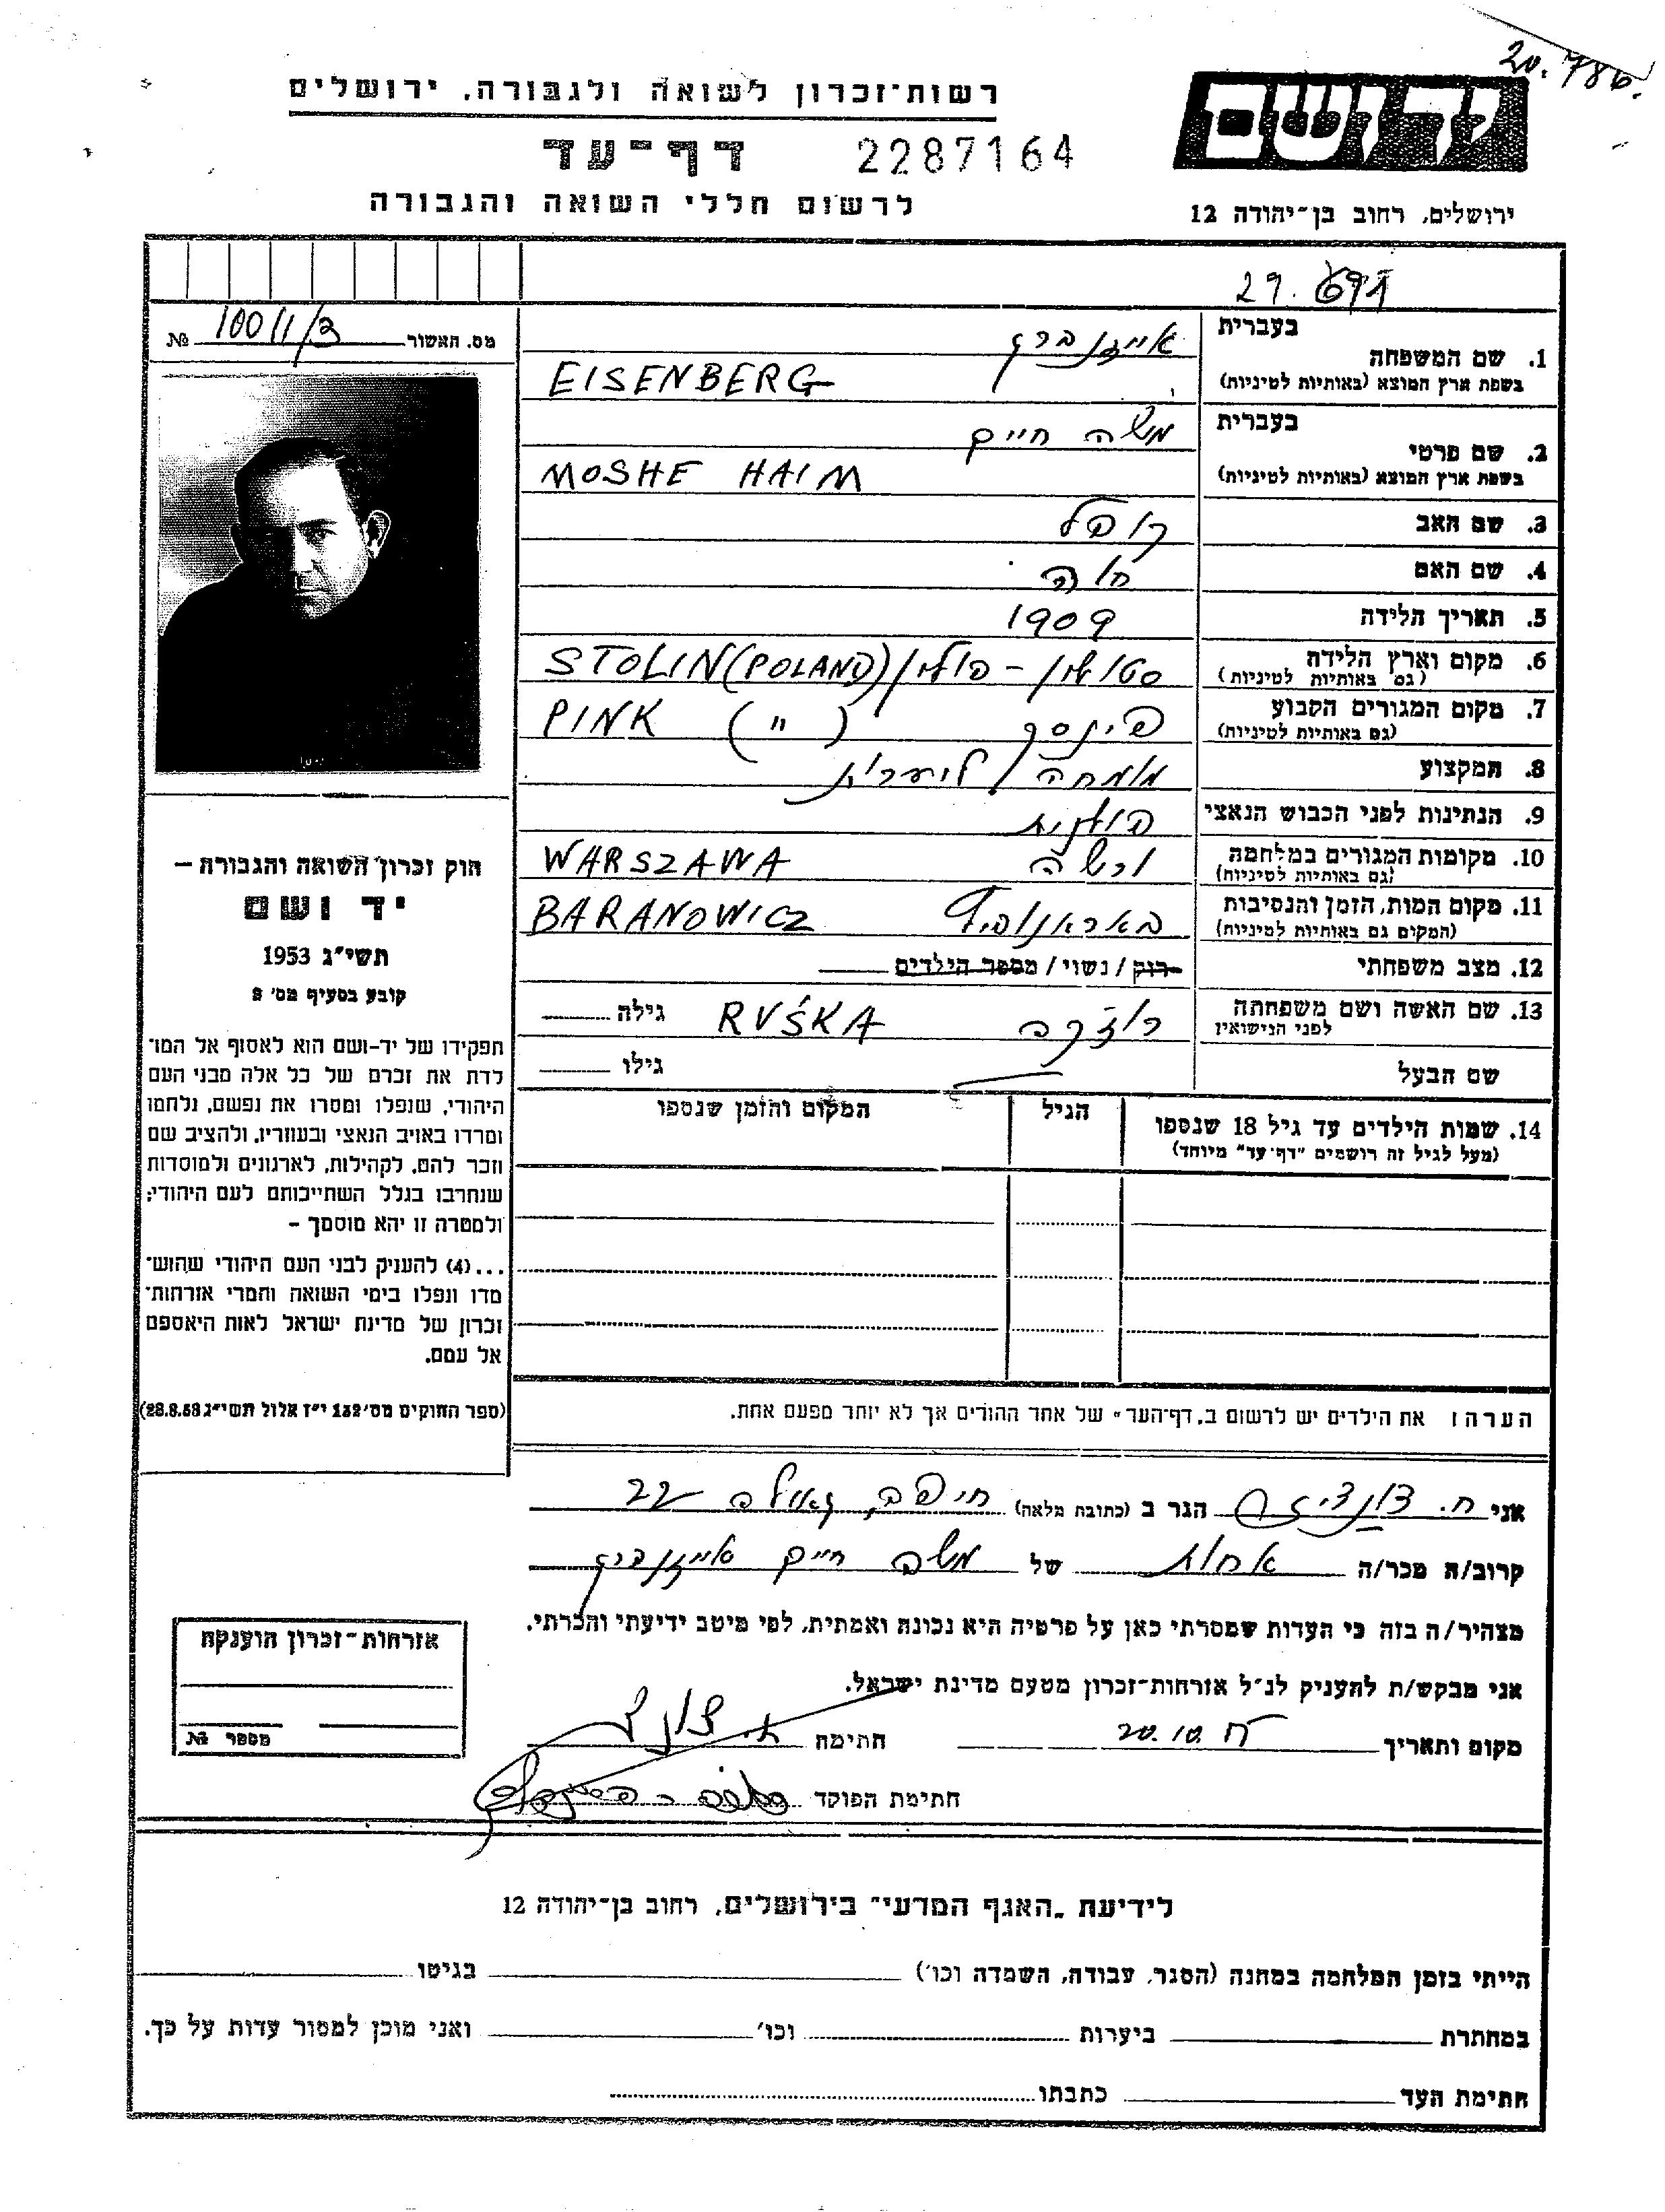 20.786.
רשות־זכרון לשואה ולגבורה, ירושלים
יד ושם
דף־עד 2287164
לרשום חללי השואה והגבורה
ירושלים, רחוב בן־יהודה 12
29.
מס. האשור № 10011/
1. שם המשפחה בעברית אייזנברג
בשפת ארץ המוצא (באותיות לטיניות) EISENBERG
2. שם פרטי בעברית משה חיים
בשפת ארץ המוצא (באותיות לטיניות) MOSHE HAIM
3. שם האב קופל
4. שם האם חוה
5. תאריך הלידה 1909
6. מקום וארץ הלידה סטולין - פולין / STOLIN (POLAND)
(גם באותיות לטיניות)
7. מקום המגורים הקבוע פינסק ( " ) PINK
(גם באותיות לטיניות)
8. המקצוע מומחה ליערות
9. הנתינות לפני הכבוש הנאצי פולנית
10. מקומות המגורים במלחמה ורשה WARSZAWA
(גם באותיות לטיניות)
11. מקום המות, הזמן והנסיבות באראנוביץ BARANOWICZ
(המקום גם באותיות לטיניות)
12. מצב משפחתי רוק / נשוי / מספר הילדים
13. שם האשה ושם משפחתה רוז'קה RUŚKA גילה
לפני הנישואין
שם הבעל גילו
14. שמות הילדים עד גיל 18 שנספו הגיל המקום והזמן שנספו
(מעל לגיל זה רושמים "דף־עד" מיוחד)
חוק זכרון השואה והגבורה –
יד ושם
תשי"ג 1953
קובע בסעיף מס' 2
תפקידו של יד-ושם הוא לאסוף אל המו־
לדת את זכרם של כל אלה מבני העם
היהודי, שנפלו ומסרו את נפשם, נלחמו
ומרדו באויב הנאצי ובעוזריו, ולהציב שם
וזכר להם, לקהילות, לארגונים ולמוסדות
שנחרבו בגלל השתייכותם לעם היהודי;
ולמטרה זו יהא מוסמך –
...(4) להעניק לבני העם היהודי שהוש־
מדו ונפלו בימי השואה והמרי אזרחות־
זכרון של מדינת ישראל לאות היאספם
אל עמם.
(ספר החוקים מס' 132 י"ז אלול תשי"ג 28.8.53)
הערה: את הילדים יש לרשום ב„דף־העד" של אחד ההורים אך לא יותר מפעם אחת.
אני ח. הגר ב (כתובת מלאה) חיפה, גאולה 22
קרוב/ה מכר/ה אחות של משה חיים אייזנברג
מצהיר/ה בזה כי העדות שמסרתי כאן על פרטיה היא נכונה ואמתית, לפי מיטב ידיעתי והכרתי.
אני מבקש/ת להעניק לנ"ל אזרחות־זכרון מטעם מדינת ישראל.
מקום ותאריך 20.10. חתימה
חתימת הפוקד
אזרחות־זכרון הוענקה
מספר №
לידיעת „האגף המדעי" בירושלים, רחוב בן־יהודה 12
הייתי בזמן המלחמה במחנה (הסגר, עבודה, השמדה וכו') בגיטו
במחתרת ביערות וכו' ואני מוכן למסור עדות על כך.
חתימת העד כתבתו